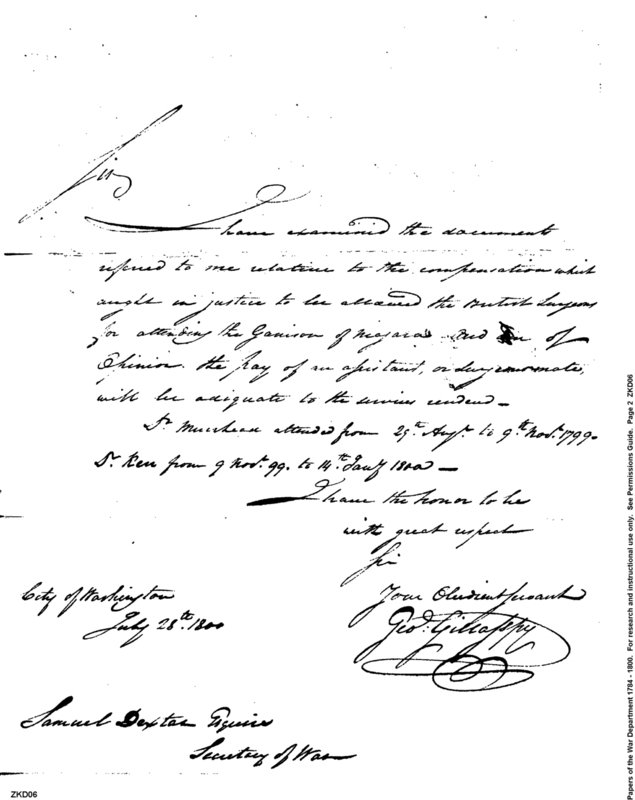 Sir
I have examined the documents
refered to me relative to the compensation which
ought in justice to be allowed the British Surgeons
for attending the Garrison of Niagara and of
Opinion the pay of an assistant, or Surgeons mate,
will be adequate to the services rendered —
Dr. Muirhead attended from 25th. Augt. to 9th Novr. 1799.
Dr. Kerr from 9 Novr. 99. to 14th. Jany 1800 —
I have the honor to be
with great respect
Sir
Your Obedient Servant
Geo: Gillasspy
City of Washington
July 28th. 1800
Samuel Dexter Esquire
Secretary of War
ZKD06
Papers of the War Department 1784 - 1800. For research and instructional use only. See Permissions Guide. Page 2 ZKD06